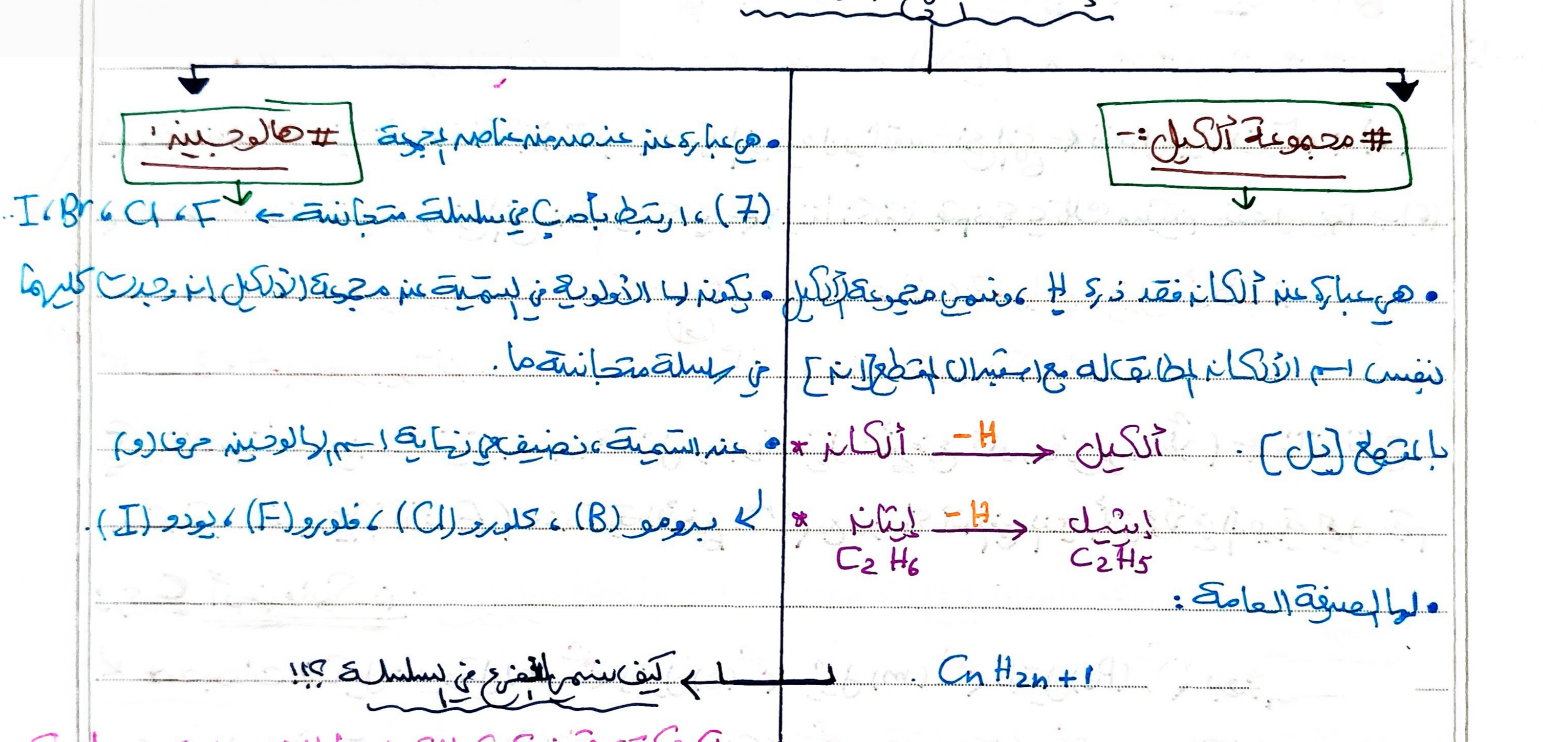 # مجموعة ألكيل :-
• هي عبارة عن ألكان فقد ذرة H ، وتسمى مجموعة الألكيل
بنفس اسم الألكان المطابق له مع استبدال المقطع [ان]
بالمقطع [يل] .
* ألكان -H → ألكيل
* إيثان -H → إيثيل
C2H6 C2H5
• لها الصيغة العامة :
CnH2n+1 .
# هالوجين :
• هي عبارة عن عنصر من عناصر المجموعة
(7) ، ارتبط بـ في سلسلة متجانسة ← F ، Cl ، Br ، I ..
• يكون لها الأولوية في التسمية عن مجموعة الألكيل إن وجدت كليهما
في سلسلة متجانسة ما .
• عند التسمية ، نضيف في نهاية اسم الهالوجين حرف (و)
↙ برومو (B) ، كلورو (Cl) ، فلورو (F) ، يودو (I) .
← كيف نسمي التفرع في السلسلة ؟!!